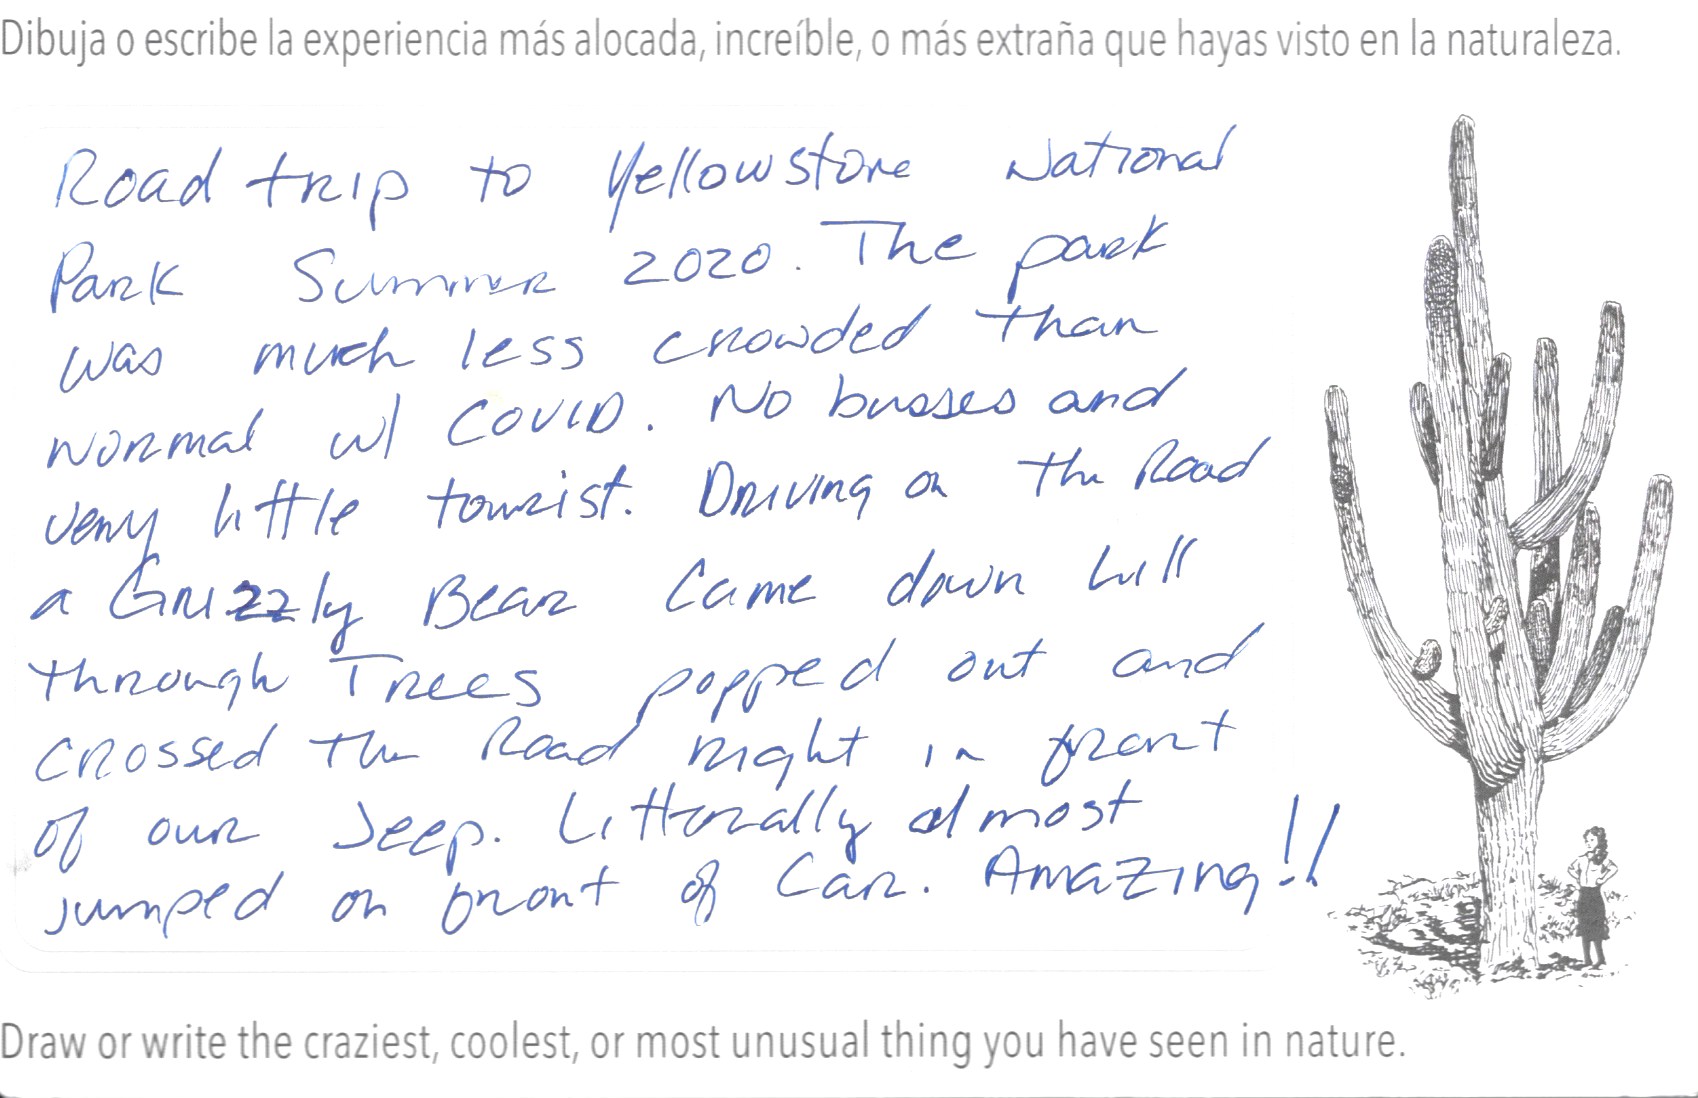 Dibuja o escribe la experiencia más alocada, increíble, o más extraña que hayas visto en la naturaleza.
Road trip to Yellowstone National
Park Summer 2020. The park
was much less crowded than
normal w/ COVID. No busses and
very little tourist. Driving on the Road
a Grizzly Bear Came down hill
through Trees popped out and
crossed the Road right in front
of our Jeep. Litterally almost
jumped on front of Car. Amazing!!
Draw or write the craziest, coolest, or most unusual thing you have seen in nature.